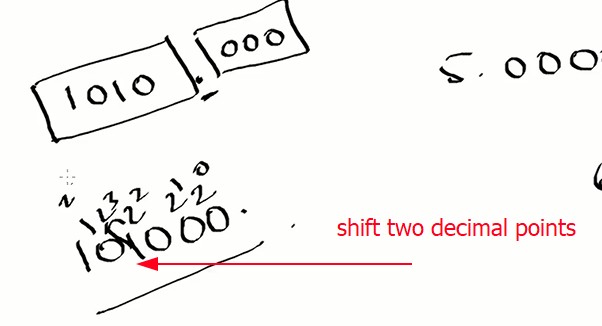 1010 . 000
5.000
2 1 0
2 3 2 2 2
101000.
shift two decimal points